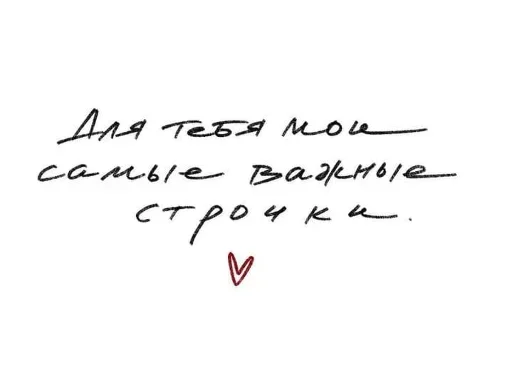 Для тебя мои
самые важные
строчки.